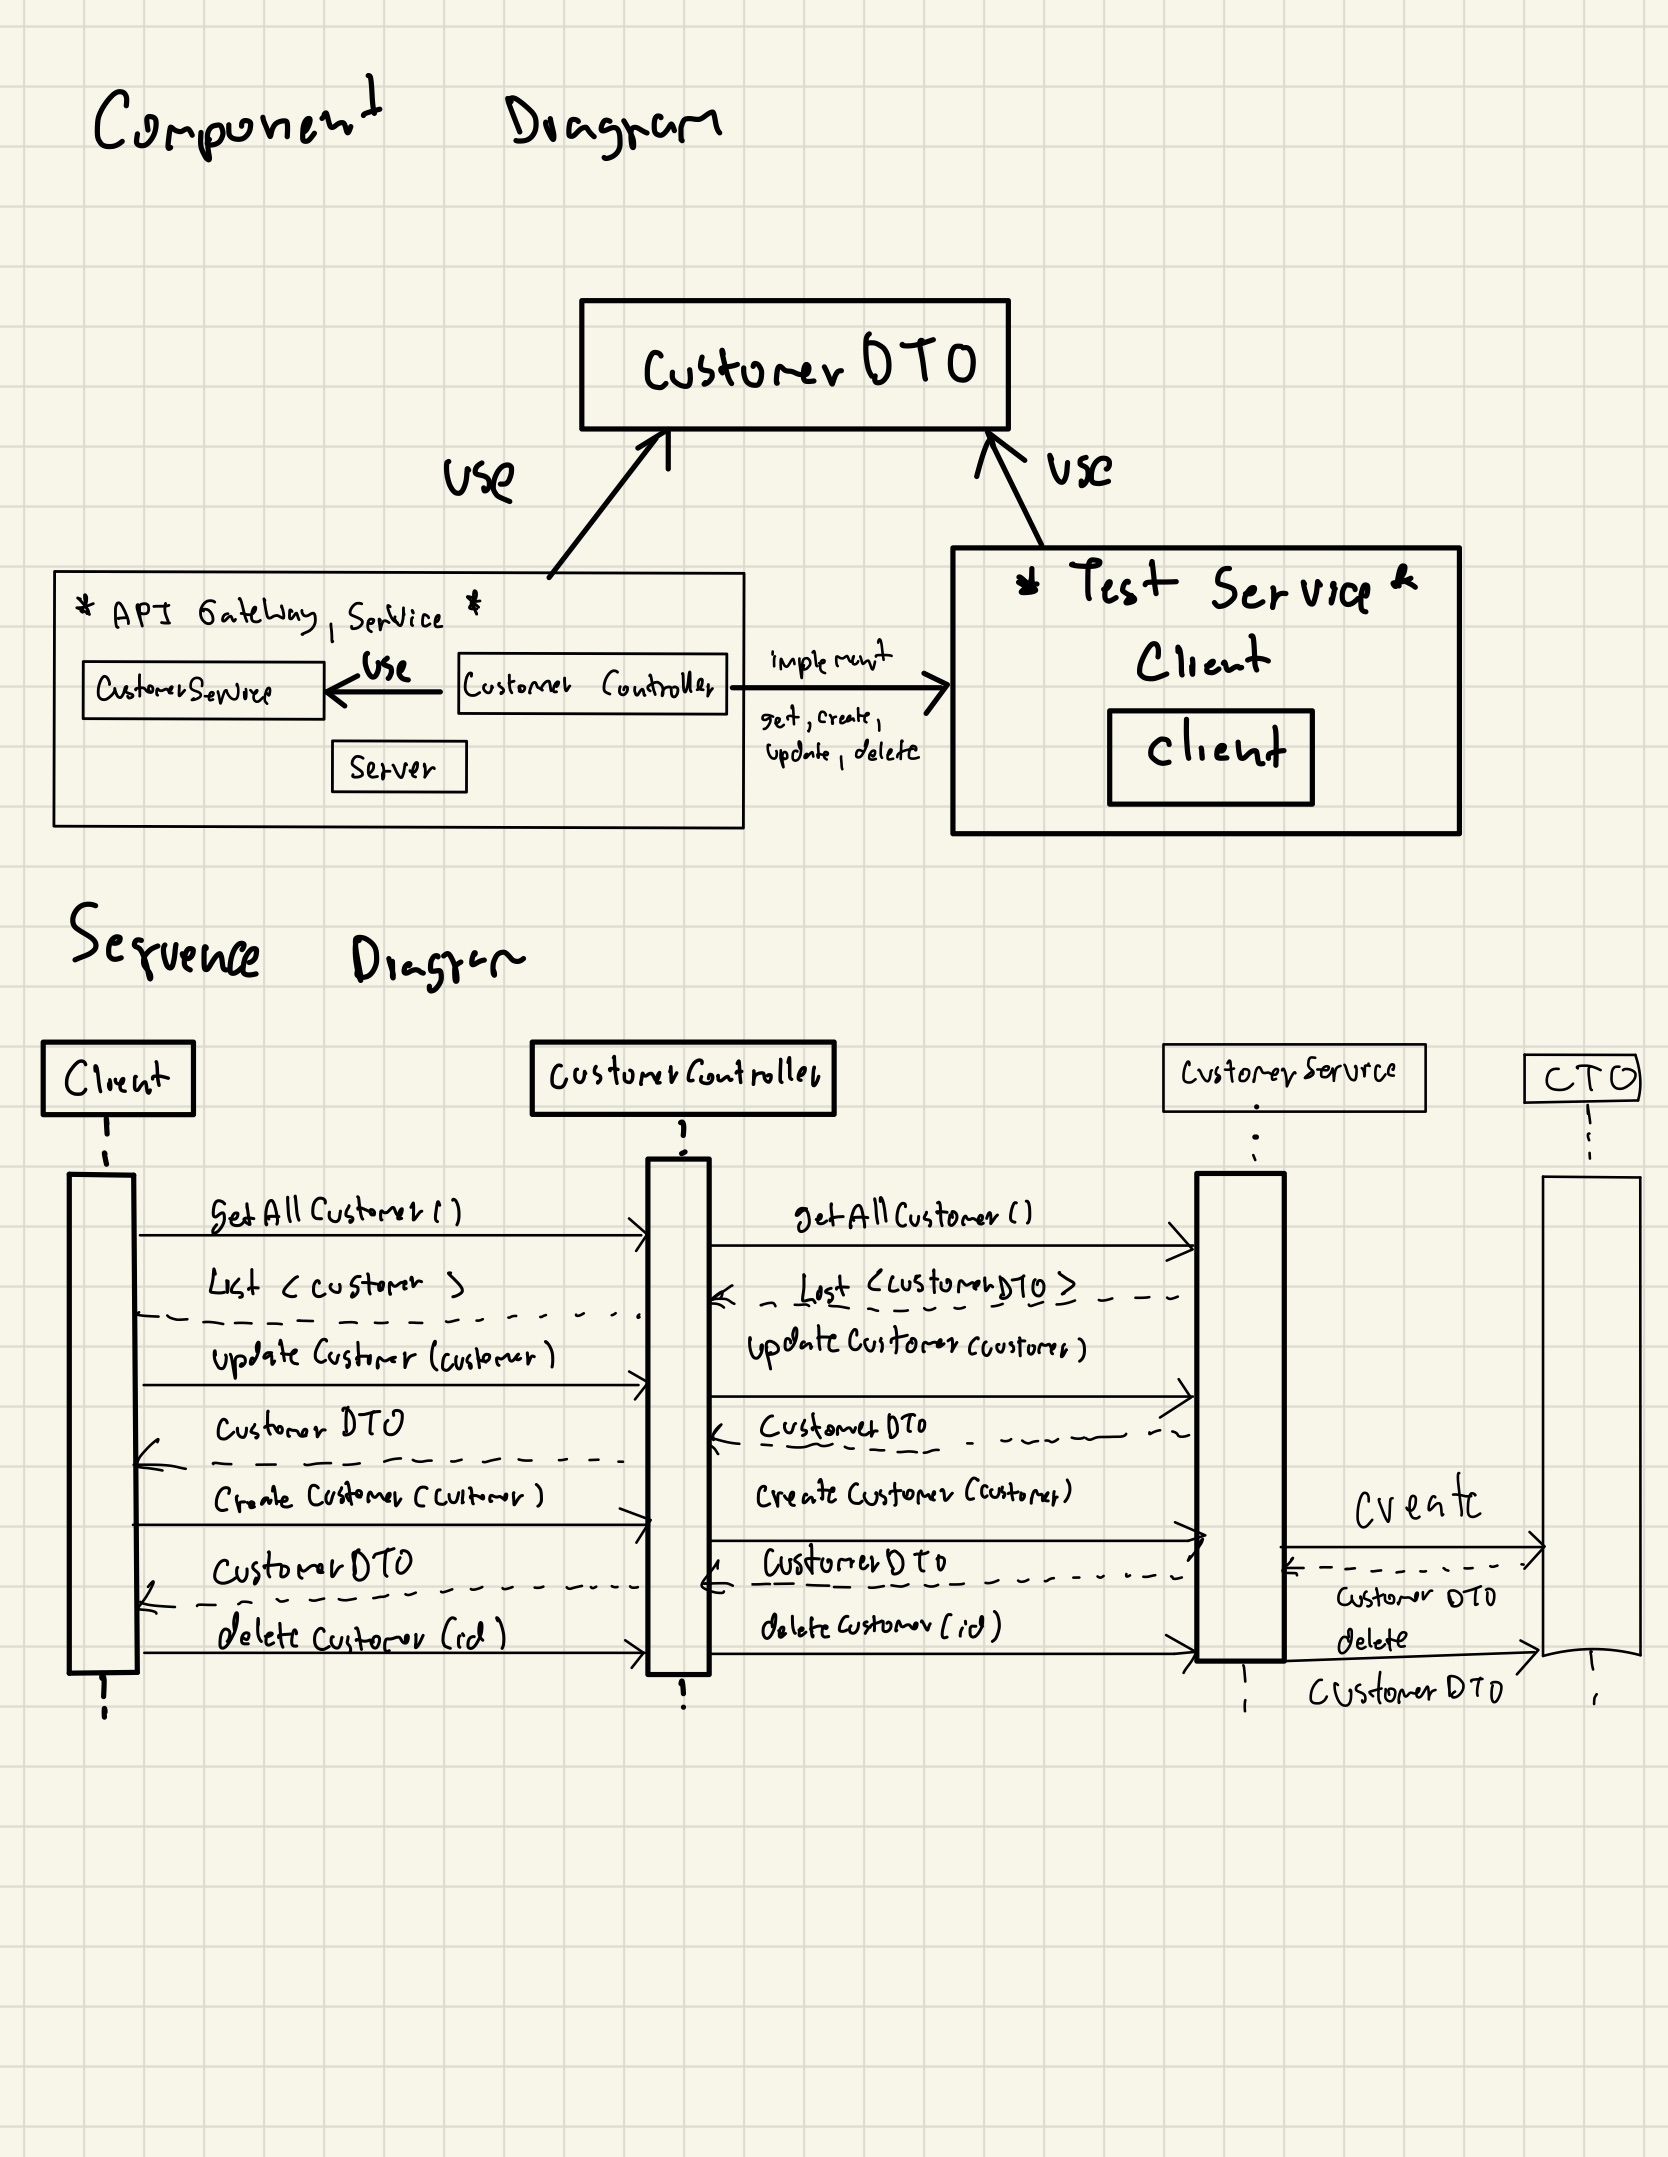 Component Diagram
Customer DTO
use
use
* API Gateway, Service *
CustomerService
use
Customer Controller
Server
implement
get, create,
update, delete
* Test Service *
Client
Client
Sequence Diagram
Client
CustomerController
CustomerService
CTO
getAllCustomer()
getAllCustomer()
List <customer>
List <CustomerDTO>
updateCustomer(customer)
updateCustomer(customer)
Customer DTO
CustomerDTO
Create Customer(customer)
createCustomer(customer)
create
CustomerDTO
CustomerDTO
Customer DTO
deleteCustomer(id)
deleteCustomer(id)
delete
CustomerDTO